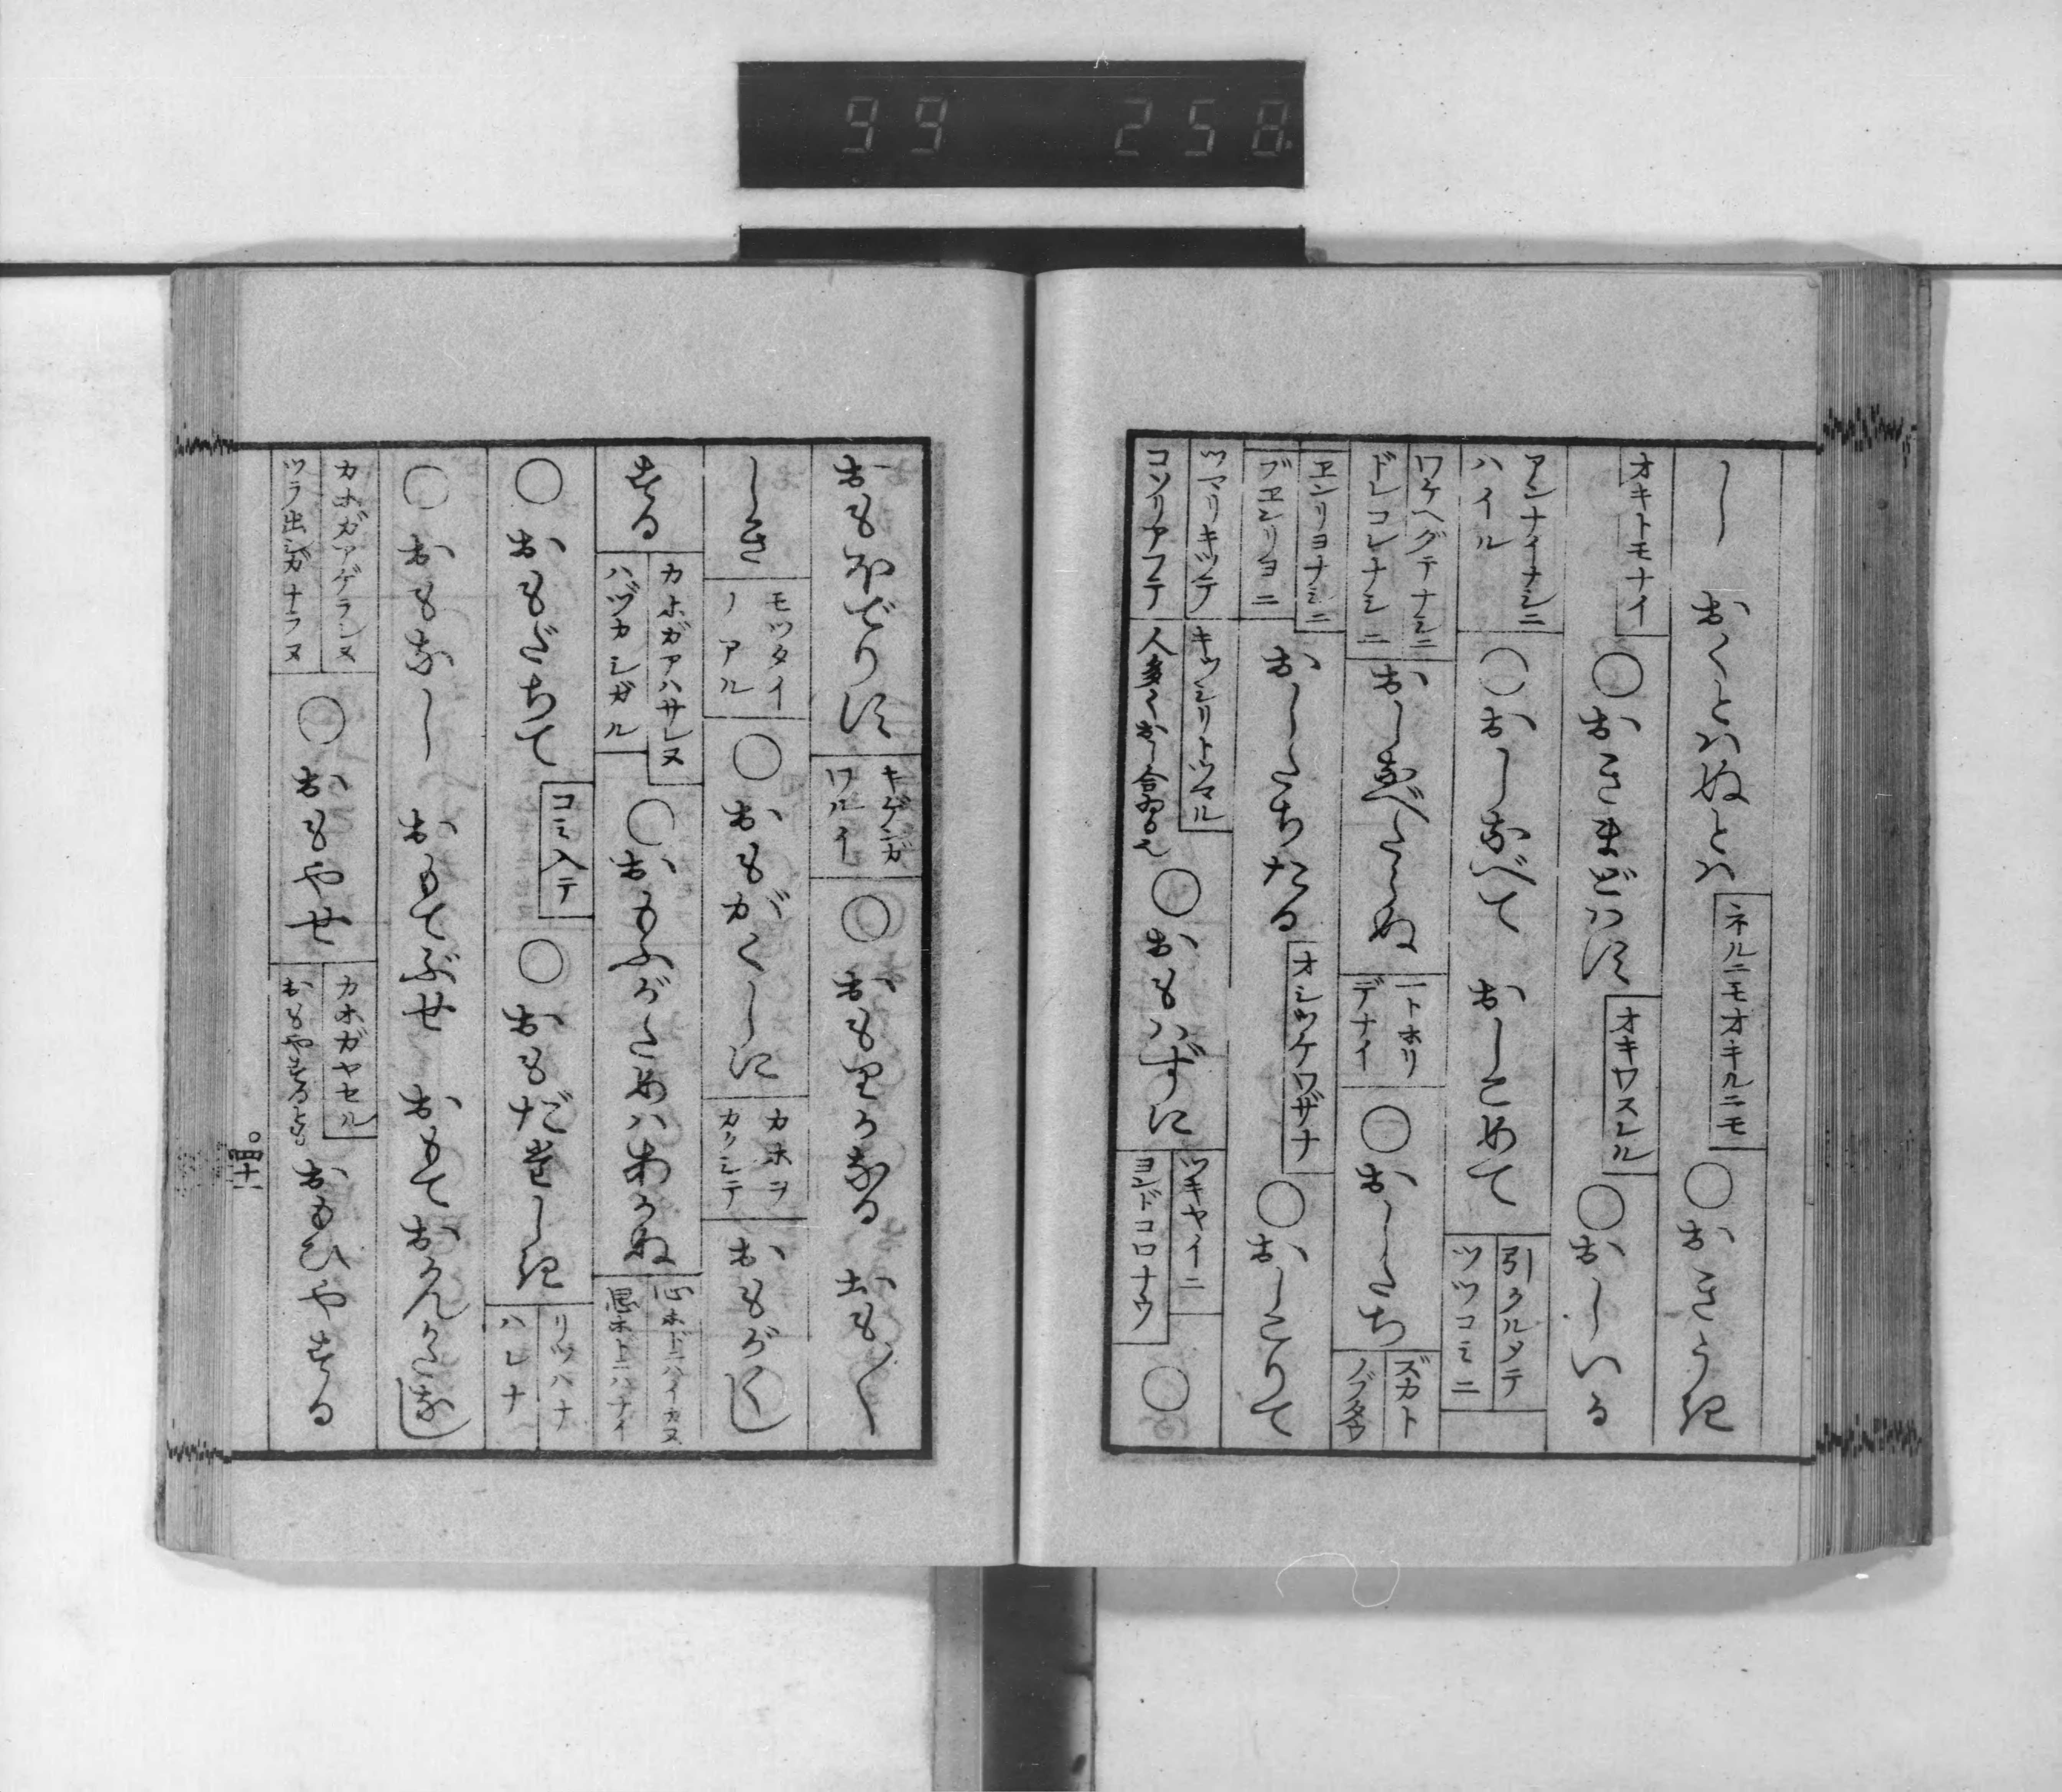 99 258
し おくとはぬとは ネルニモオキルニモ ○おきうき
オキトモナイ ○おきまどはす オキワスレル ○おしいる
アンナイナシニハイル ○おしなべて おしこめて 引クルメテ ツツコミニ
ワケヘダテナシニ ドレコレナシニ おしなべたらぬ 一トホリデナイ ○おしたち ズカト
エンリヨナシニ ブエンリヨニ おしたちたる オシツケワザナ ○おしこりて
ツマリキツテ コソリアフテ キツシリトツマル 人多くおし合 ○おもはずに ツキヤイニ ヨンドコロナウ ○
おもほでりす キゲンガワルイ ○おもりかなる おも〱
しき モツタイノアル ○おもがくしに カホヲカクシテ おもがくし
する カホガアハサレヌ ハヅカシガル ○おもふがためはあかぬ
○おもだちて コミ入テ ○おもだゝしき リツハナ ハレナ
○おもなし おもてぶせ おもておかんかたなし
カホガアゲラレヌ ツラ出シガナラヌ ○おもやせ カホガヤセル おもやする おもひやする
四十一